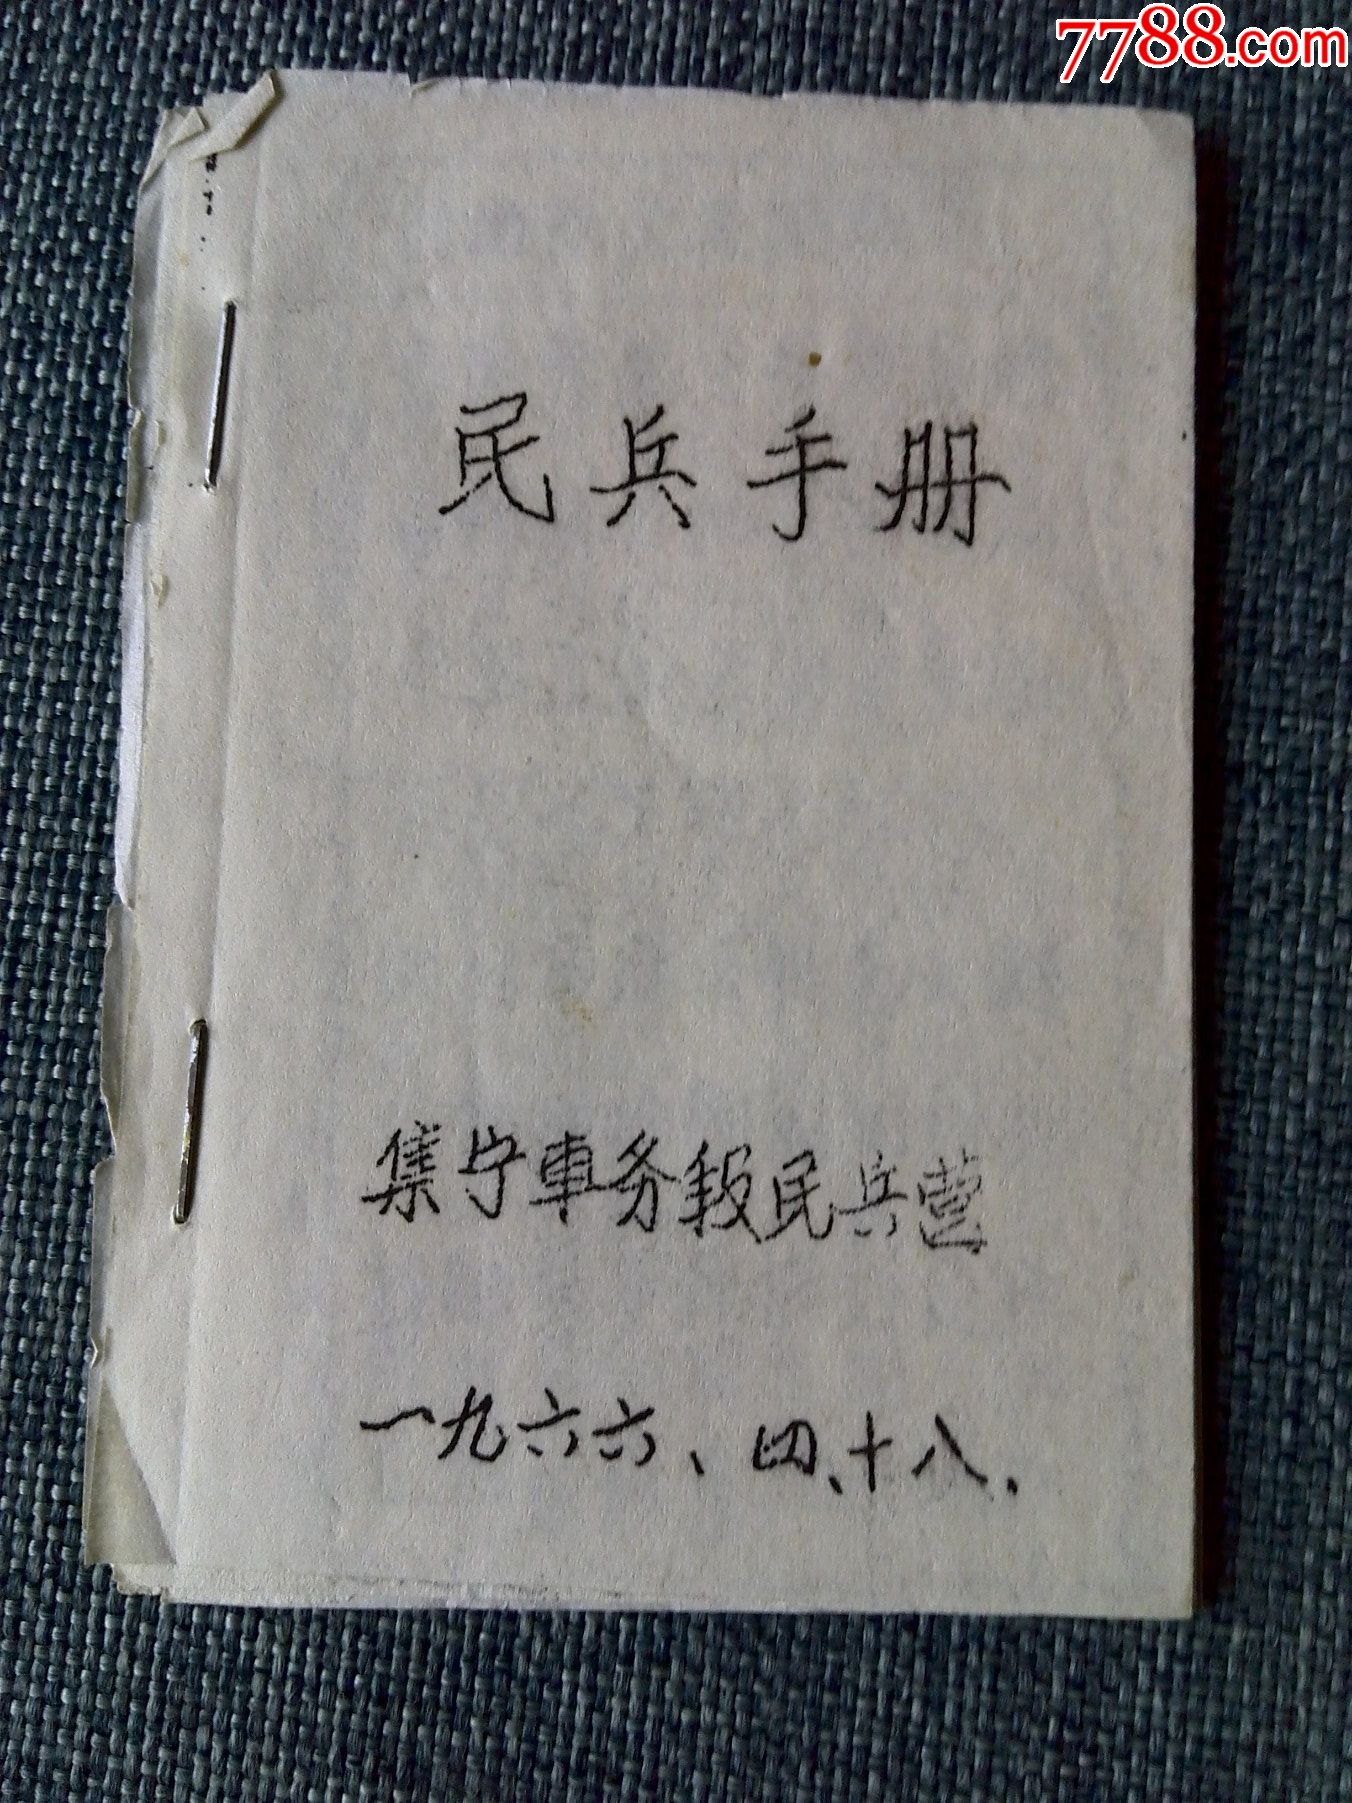 7788.com
民兵手册
集宁車务段民兵营
一九六六、四、十八.